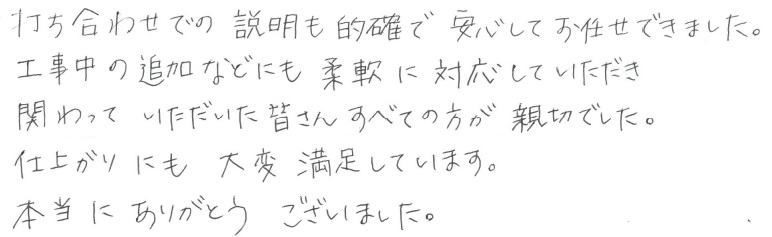 打ち合わせでの説明も的確で安心してお任せできました。
工事中の追加などにも柔軟に対応していただき
関わっていただいた皆さんすべての方が親切でした。
仕上がりにも大変満足しています。
本当にありがとうございました。